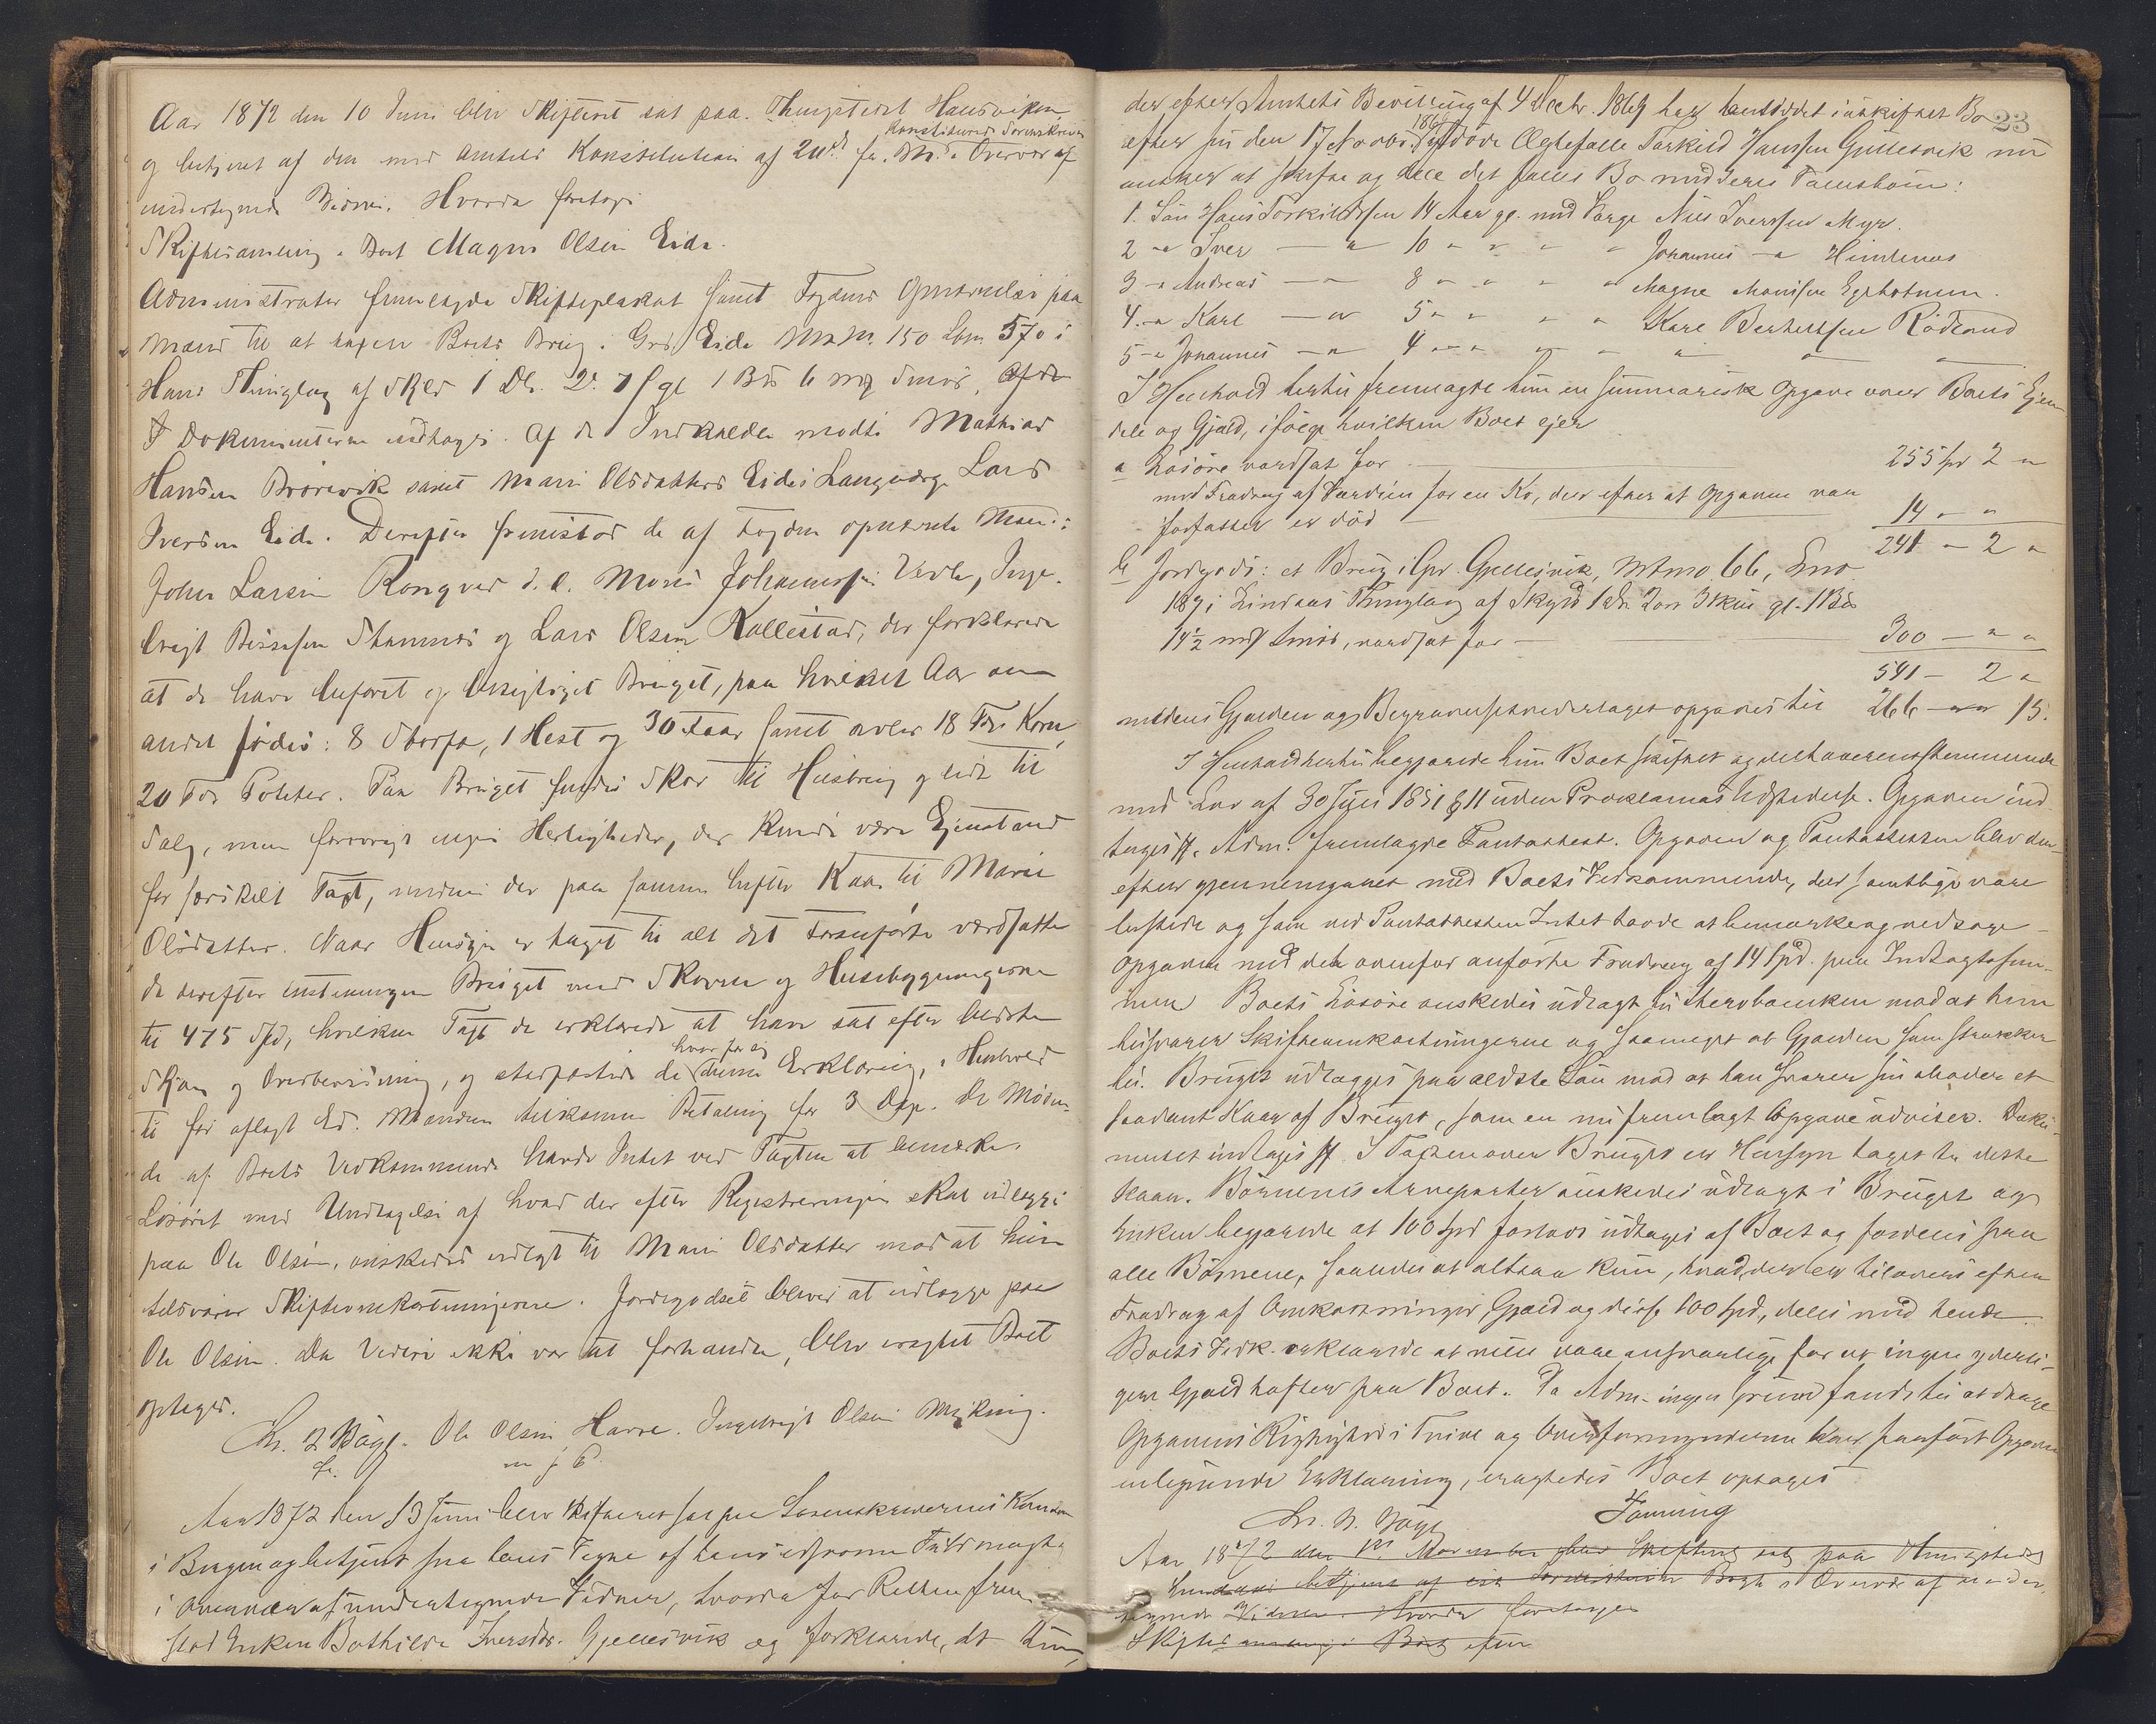 Aar 1872 den 10 Juni blev Skifteret sat paa Thingstedet Hausviken
og betjent af den med Amtets Konstitution af 20de f. M. konstituerede Sorenskriver i Overvær af
undertegnede Vidner. Hvorda foretoges
Skiftesamling i Boet Magne Olsen Eide.
Administrator fremlagde Skifteplakat samt Fogdens Opnævnelse paa
Mænd til at taxere Boets Brug i Grd. Eide M. No. 150 Lbn. 370 i
Haus Thinglag af Skyld 1 Dlr. 2 ort 7 s gl. 1 Bd 6 mrk Smør,
Dokumenterne indtages. Af de Indkaldte mødte Mathias
Hansen Brørvik samt Mari Olsdatters Eides Laugværge Lars
Iversen Eide. Derefter fremstod de af Fogden opnævnte Mænd:
John Larsen Rongved d. e. Mons Johannessen Vedle, Inge-
brigt Stamnes og Lars Olsen Kallestad, der forklarede
at de have befaret og besigtiget Bruget, paa hvilket Aar om
andet fødes: 8 Storfæ, 1 Hest og 30 Faar samt avles 18 Tdr Korn,
20 Tdr Poteter. Paa Bruget findes Skov til Husbrug og lidt til
Salg, men forøvrigt ingen Herligheder, der kunde være Gjenstand
for særskilt Taxt, medens der paa samme hefter Kaar til Mari
Olsdatter. Naar Hensyn er taget til alt det Foranførte værdsatte
de derefter enstemmigen Bruget med Skoven og Husebygningerne
til 475 Spd, hvilken Taxt de erklærede at have sat efter bedste
Skjøn og Overbevisning, og stadfæstede de hvær for sig denne Erklæring, i Henhold
til før aflagt Ed. Mændene tilkomme Betaling for 3 Dage. De Møden-
de af Boets Vedkommende havde Intet ved Taxten at bemærke.
Løsøret med Undtagelse af hvad der efter Registreringen skal udlægges
paa Ole Olsen, ønskedes udlagt til Mari Olsdatter mod at hun
tilsvarer Skifteomkostningerne. Jordegodset bliver at udlægge paa
Ole Olsen. Da Videre ikke var at forhandle, blev eragtet Boet
optages.
Chr. Z. Bøgh. Ole Olsen Havre. Ingebrigt Olsen Mykning.
Aar 1872 den 13 Juni blev Skifteret sat paa Sorenskriverens Kontor
i Bergen og betjent paa hans Vegne af hans edsvorne Fuldmægtig
i Overvær af undertegnede Vidner, hvorda for Retten frem-
stod Enken Bothilde Iversdr. Gjellesvik og forklarede, at hun,
23
der efter Amtets Bevilling af 4 Decbr. 1869 har hensiddet i uskiftet Bo
efter sin den 17 Novbr. 1869 afdøde Ægtefælle Torkild Hansen Gjellesvik nu
ønsker at skifte og dele det fælles Bo med deres Fællesbørn:
1. Søn Hans Torkildsen 14 Aar gl. med Værge Nils Iversen Myr.
2 - " Iver — " 10 " " " " Johannes — " Hindenes
3 - " Andreas — " 8 " " " " Magne Monsen Eggebotnen.
4. - " Karl — " 5 " " " " Karl Berhertsen Rødland
5 - " Johannes — " 4 " " " " " — —
I Henhold hertil fremlagde hun en summarisk Opgave over Boets Eien-
dele og Gjæld, ifølge hvilken Boet ejer
a Løsøre værdsat for — 255 Spd 2 "
med Fradrag af Værdien for en Ko, der efter at Opgaven var
forfattet er død — 14 " "
241 - 2 "
b Jordegods: et Brug i Grd. Gjellesvik, Mtrno 66, Lno
189 i Lindaas Thinglag af Skyld 1 Dlr. 2 ort 3 skill gl. 1 Bd
14½ mrk Smør, værdsat for — 300 — " "
541 - 2 "
medens Gjælden og Begravelsesvederlaget opgaves til 266 — " 15.
I Henhold hertil begjærede hun Boet skiftet og delt overensstemmende
med Lov af 30 Juli 1851 § 11 uden Proklamas Udstedelse. Opgaven ind-
tages #. Adm. fremlagde Panteattest. Opgaven og Panteattesten blev der-
efter gjennemgaaet med Boets Vedkommende, der samtlige vare
tilstede og som ved Panteattesten Intet havde at bemærke og vedtoge
Opgaven med den ovenfor anførte Fradrag af 14 Spd. paa Indtægtssum-
men. Boets Løsøre ønskedes udlagt til Stervboenken mod at hun
tilsvarer Skifteomkostningerne og saameget af Gjælden som strækker
til. Bruget udlægges paa ældste Søn mod at han svarer sin Moder et
saadant Kaar af Bruget, som en nu fremlagt Opgave udviser. Doku-
mentet indtages #. I Taxten over Bruget er Hensyn taget til dette
Kaar. Børnenes Arveparter ønskedes udlagt i Bruget og
Enken begjærede at 100 Spd forlods udtages af Boet og fordeles paa
alle Børnene, saaledes at altsaa kun, hvad der er tilovers efter
Fradrag af Omkostninger, Gjæld og disse 100 Spd, deles med hende.
Boets Vedk. erklærede at ville være ansvarlige for at ingen yderli-
gere Gjæld hefter paa Boet. Da Adm. ingen Grund fandt til at drage
Opgavens Rigtighed i Tvivl og Overformynderne har paaført Opgaven
erklæring, eragtedes Boet optaget
Chr. Z. Bøgh Fanning
Aar 1872 den 1ste November blev Skifteret sat paa Thingstedet
Lindaas betjent af Sorenskriver Bøgh i Overvær af under-
tegnede Vidner. Hvorda foretoges
Skiftesamling i Boet efter